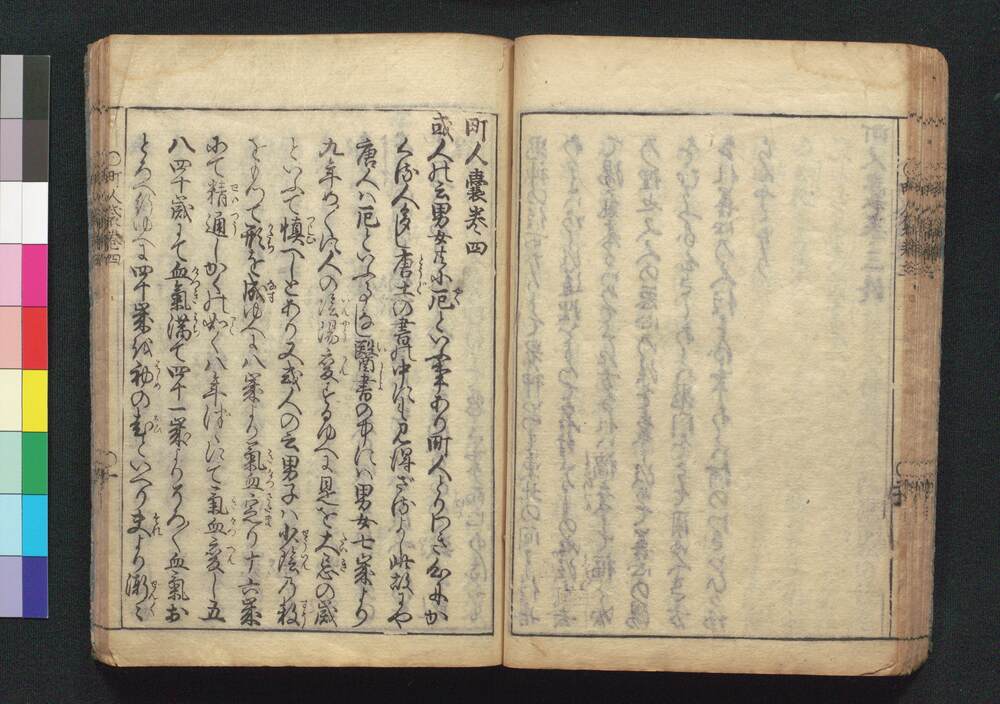 町人嚢巻四
或人の云男女共に厄といふ事あり町人とりわき心にか
くる人多し唐土の書の中にも見得ざるよし此故にや
唐人は厄といふ事なし醫書の中には男女七歳より
九年めぐに人の陰陽変ずるゆへに是を大忌の歳
といふて慎べしとあり又或人の云男子は少陰の数
をもつて形を成ゆへに八歳より氣血定り十六歳
にて精通しかくの如く八年づゝにて氣血変し五
八四十歳にて血氣満て四十一歳よりそろ〳〵血氣お
とろへるゆへに四十歳を初の老といへりまより漸々
町人嚢巻四